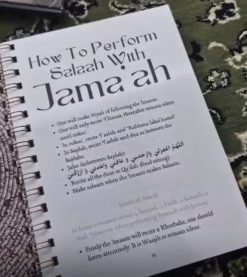 How To Perform
Salaah With
Jama'ah
• One will make Niyah of following the Imaam.
• One will only recite Thanaa, thereafter remain silent
until rukoo'.
• In rukoo', recite Tasbih and "Rabbana lakal hamd"
• In Sajdah, recite Tasbih and dua in between the
Sajdahs.
• Jalsa (between Sajdah):
اللهم اغفرلي وارحمني و عافني واهدني و ارزقني
• Recite all the duas in Qa'dah
• Make salaam when the Imaam makes Salaam.
Jumu'ah Salaah
• Firstly the Imaam will recite a Khutbah, one should
listen attentively. It is Waajib to remain silent.